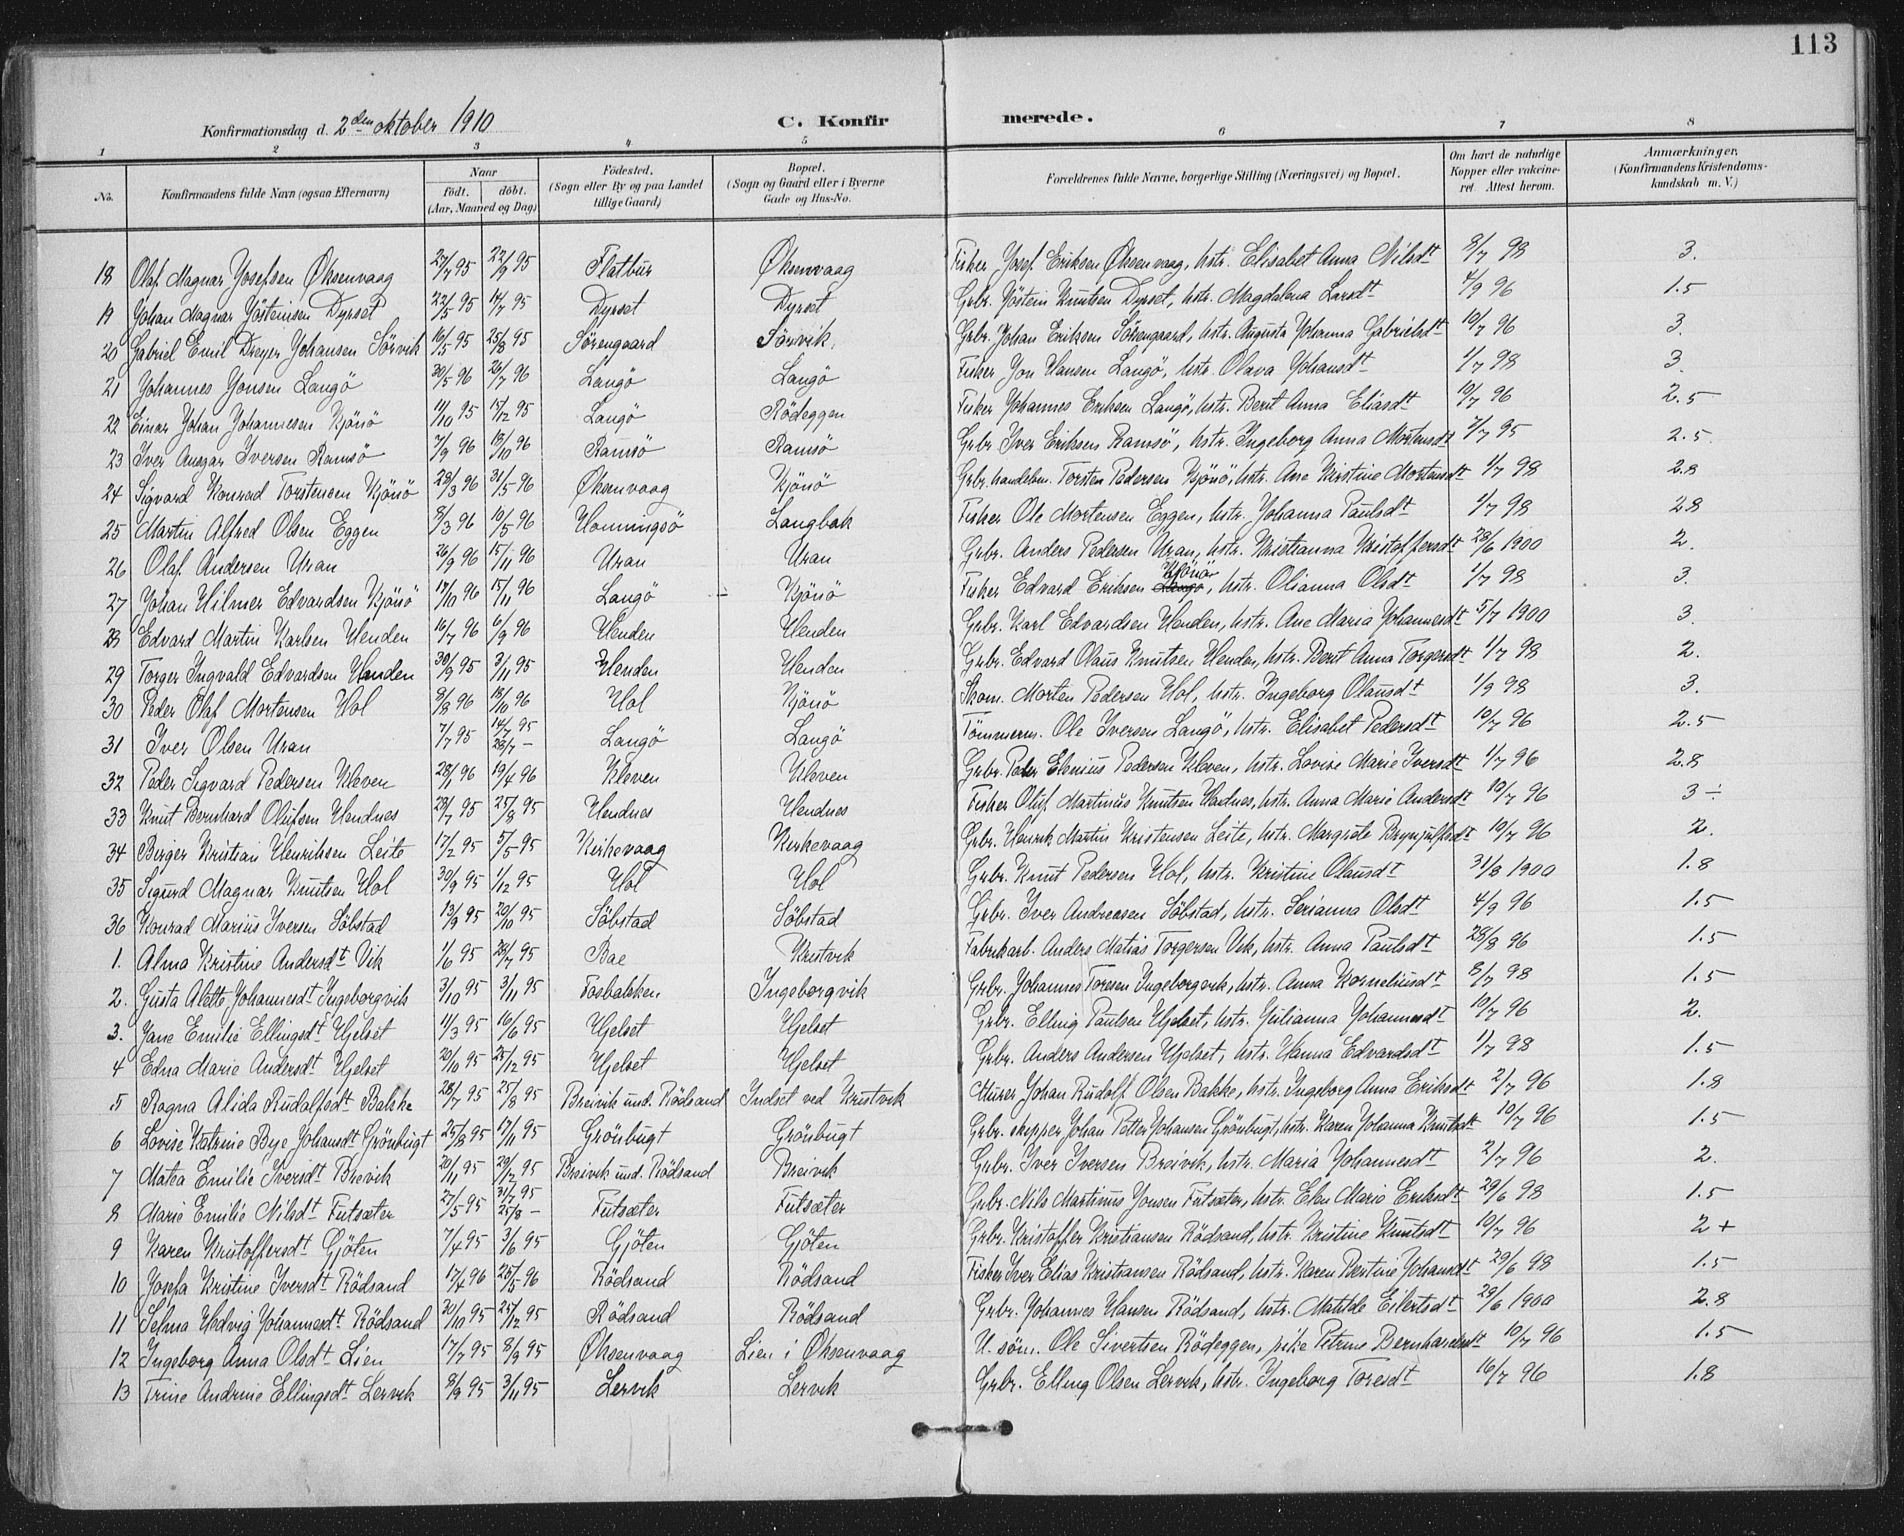 113
Konfirmationsdag d. 2den oktober 1910 C. Konfirmerede.
1 2 3 4 5 6 7 8
No. Konfirmandens fulde Navn (ogsaa Efternavn) Naar født. døbt. (Aar, Maaned og Dag) Fødested. (Sogn eller By og paa Landet tillige Gaard) Bopæl. (Sogn og Gaard eller i Byerne Gade og Hus-No. Forældrenes fulde Navne, borgerlige Stilling (Næringsvei) og Bopæl. Om havt de naturlige Kopper eller vakcineret. Attest herom. Anmærkninger. (Konfirmandens Kristendomskundskab m. V.)
18 Olaf Magnar Josefsen Øksenvaag 27/7 95 22/9 95 Flatbur Øksenvaag Fisker Josef Eriksen Øksenvaag, hstr. Elisabet Anna Nilsdt 8/7 98 3.
19 Johan Magnar Jösteinsen Dyrset 22/5 95 14/7 95 Dyrset Dyrset Grbr. Jöstein Knutsen Dyrset, hstr. Magdalena Larsdt 4/9 96 1.5
20 Gabriel Emil Dreyer Johansen Sörvik 16/5 95 25/8 95 Sörengaard Sörvik. Grbr. Johan Eriksen Sörengaard, hstr. Augusta Johanna Gabrielsdt 10/7 96 3.
21 Johannes Jonsen Langö 30/5 96 26/7 96 Langö Langö Fisker Jon Hansen Langö, hstr. Olava Johansdt 1/7 98 3.
22 Einar Johan Johannesen Kjönö 11/10 95 15/12 95 Langö Rödeggen Fisker Johannes Eriksen Langö, hstr. Berit Anna Eliasdt 10/7 96 2.5
23 Iver Ansgar Iversen Ramsö 7/9 96 18/10 96 Ramsö Ramsö Grbr. Iver Eriksen Ramsö, hstr. Ingeborg Anna Mortensdt 7/7 95 2.5
24 Sigvard Konrad Torstensen Kjönö 28/3 96 31/5 96 Øksenvaag Kjönö Grbr. handelsm. Torsten Pedersen Kjönö, hstr. Ane Kristine Mortensdt 1/7 98 2.8
25 Martin Alfred Olsen Eggen 8/3 96 10/5 96 Honningsö Langbak Fisker Ole Mortensen Eggen, hstr. Johanna Paulsdt 1/7 98 2.8
26 Olaf Andersen Uran 26/9 96 15/11 96 Uran Uran Grbr. Anders Pedersen Uran, hstr. Kristianna Kristoffersdt 28/6 1900 2.
27 Johan Hilmer Edvardsen Kjönö 17/10 96 15/11 96 Langö Kjönö Fisker Edvard Eriksen Langö Kjönö, hstr. Olianna Olsdt 1/7 98 3.
28 Edvard Martin Karlsen Henden 16/7 96 6/9 96 Henden Henden Grbr. Karl Edvardsen Henden, hstr. Ane Maria Johannesdt 5/7 1900 3.
29 Torger Ingvald Edvardsen Henden 30/9 95 3/11 95 Henden Henden Grbr. Edvard Olaus Knutsen Henden, hstr. Berit Anna Torgersdt 1/7 98 2.
30 Peder Olaf Mortensen Hol 8/8 96 18/10 96 Hol Kjönö Skom. Morten Pedersen Hol, hstr. Ingeborg Olausdt 1/9 98 3.
31 Iver Olsen Uran 7/7 95 14/7 95 28/7 - Langö Langö Tömmerm. Ole Iversen Langö, hstr. Elisabet Pedersdt 10/7 96 2.5
32 Peder Sigvard Pedersen Kleven 28/1 96 19/4 96 Kleven Kleven Grbr. Peder Elenius Pedersen Kleven, hstr. Lovise Marie Iversdt 1/7 96 2.8
33 Knut Bernhard Olufsen Hendnes 28/7 95 25/8 95 Hendnes Hendnes Fisker Oluf Martinus Knutsen Hendnes, hstr. Anna Marie Andersdt 10/7 96 3 ÷
34 Birger Kristian Henriksen Leite 17/2 95 5/5 95 Kirkevaag Kirkevaag Grbr. Henrik Martin Kristensen Leite, hstr. Margrete Brynjulfsdt 10/7 96 2.
35 Sigurd Magnar Knutsen Hol 30/9 95 1/12 95 Hol Hol Grbr. Knut Pedersen Hol, hstr. Kristine Olausdt 31/8 1900 1.8
36 Konrad Marius Iversen Söbstad 13/9 95 20/10 95 Söbstad Söbstad Grbr. Iver Andreasen Söbstad, hstr. Serianna Olsdt 4/9 96 1.5
1. Alma Kristine Andersdt Vik 1/6 95 28/7 95 Bae Kristvik Fabrikarb. Anders Matias Torgersen Vik, hstr. Anna Paulsdt 28/8 96 1.5
2. Gusta Alette Johannesdt Ingeborgvik 3/10 95 3/11 95 Fosbakken Ingeborgvik Grbr. Johannes Toresen Ingeborgvik, hstr. Anna Korneliusdt 8/7 98 1.5
3. Jane Emilie Ellingsdt Hjelset 11/3 95 16/6 95 Hjelset Hjelset Grbr. Elling Paulsen Hjelset, hstr. Julianna Johannesdt 10/7 96 2.
4 Edna Marie Andersdt Hjelset 20/10 95 25/12 95 Hjelset Hjelset Grbr. Anders Andersen Hjelset, hstr. Hanna Edvardsdt 1/7 98 1.5
5 Ragna Alida Rudolfsdt Bakke 28/7 95 25/8 95 Breivik und. Rödsand Indset ved Kristvik Murer Johan Rudolf Olsen Bakke, hstr. Ingeborg Anna Eriksdt 2/7 96 1.8
6 Lovise Katrine Bye Johansdt Grönbugt 25/8 95 17/11 95 Grönbugt Grönbugt Grbr. skipper Johan Petter Johansen Grönbugt, hstr. Karen Johanna Knutsdt 10/7 96 1.5
7 Matea Emilie Iversdt Breivik 20/11 95 29/12 95 Breivik und. Rödsand Breivik Grbr. Iver Iversen Breivik, hstr. Maria Johannesdt 2/7 96 2.
8 Marie Emilie Nilsdt Futsæter 27/5 95 31/7 95 25/8 - Futsæter Futsæter Grbr. Nils Martinus Jonsen Futsæter, hstr. Elen Marie Eriksdt 29/6 98 1.5
9 Karen Kristoffersdt Gjöten 7/4 95 3/6 95 Gjöten Gjöten Grbr. Kristoffer Kristiansen Rödsand, hstr. Kristine Knutsdt 10/7 96 2 +
10 Josefa Kristine Iversdt Rödsand 17/4 96 25/5 96 Rödsand Rödsand Fisker Iver Elias Kristiansen Rödsand, hstr. Karen Bertine Johansdt 29/6 98 1.5
11 Selma Hedvig Johannesdt Rödsand 20/10 95 25/12 95 Rödsand Rödsand Grbr. Johannes Hansen Rödsand, hstr. Matilde Eilertsdt 29/6 1900 2.8
12 Ingeborg Anna Olsdt Lien 17/7 95 8/9 95 Øksenvaag Lien i Øksenvaag U. söm. Ole Sivertsen Rödeggen, pike Petrine Bernhardsdt 10/7 96 1.5
13 Trine Andrine Ellingsdt Lervik 8/9 95 3/11 95 Lervik Lervik Grbr. Elling Olsen Lervik, hstr. Ingeborg Toresdt 16/7 96 1.8